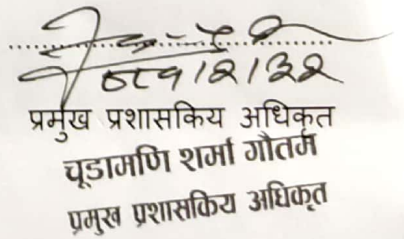 प्रमुख प्रशासकिय अधिकृत
चूडामणि शर्मा गौतम
प्रमुख प्रशासकिय अधिकृत